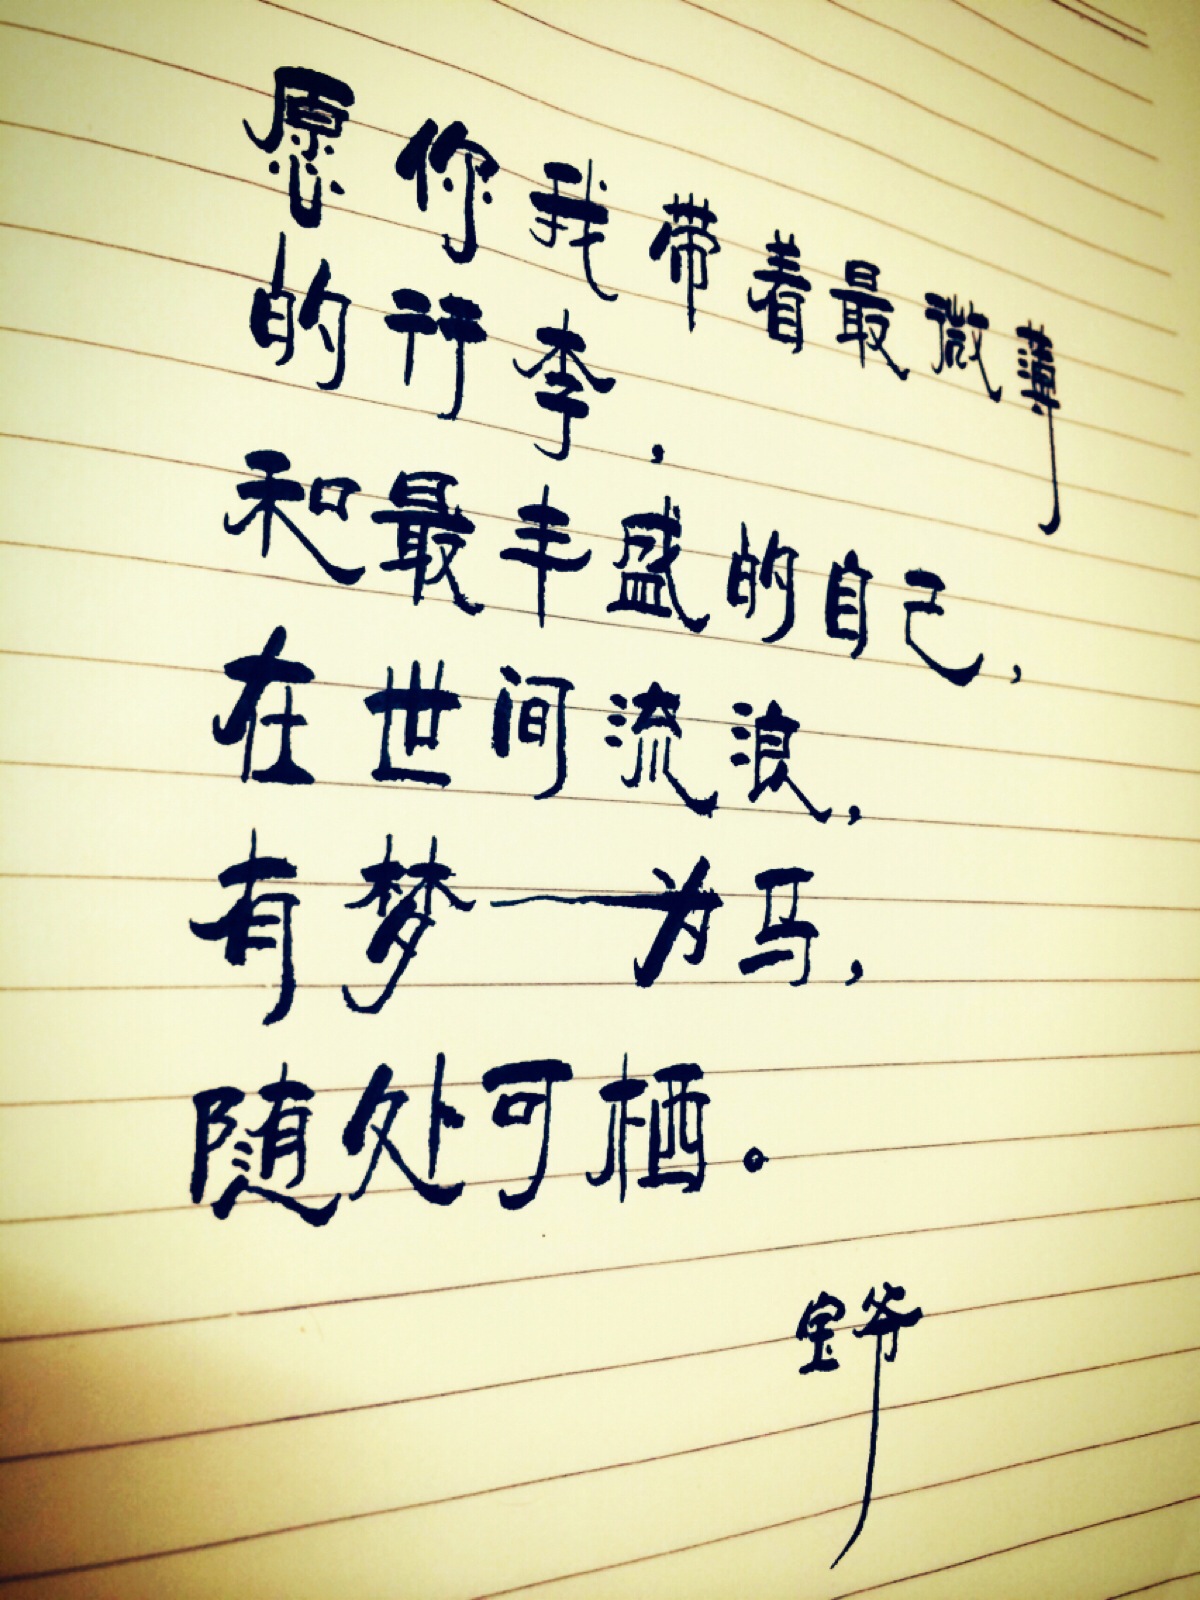 愿你我带着最微薄
的行李，
和最丰盛的自己，
在世间流浪，
有梦一为马，
随处可栖。
宝爷